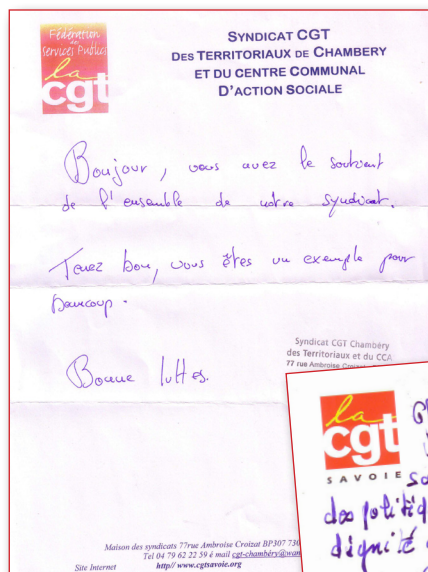 Fédération
Services Publics
la
cgt
SYNDICAT CGT
DES TERRITORIAUX DE CHAMBERY
ET DU CENTRE COMMUNAL
D'ACTION SOCIALE
Bonjour, vous avez le soutient
de l'ensemble de notre syndicat.
Tenez bon, vous êtes un exemple pour
beaucoup.
Bonne luttes.
Syndicat CGT Chambéry
des Territoriaux et du CCA
77 rue Ambroise Croizat
Maison des syndicats 77rue Ambroise Croizat BP307 730
Tel 04 79 62 22 59 é mail cgt-chambéry@wan
Site Internet http// www.cgtsavoie.org
la
cgt
SAVOIE
des politiq
dignité